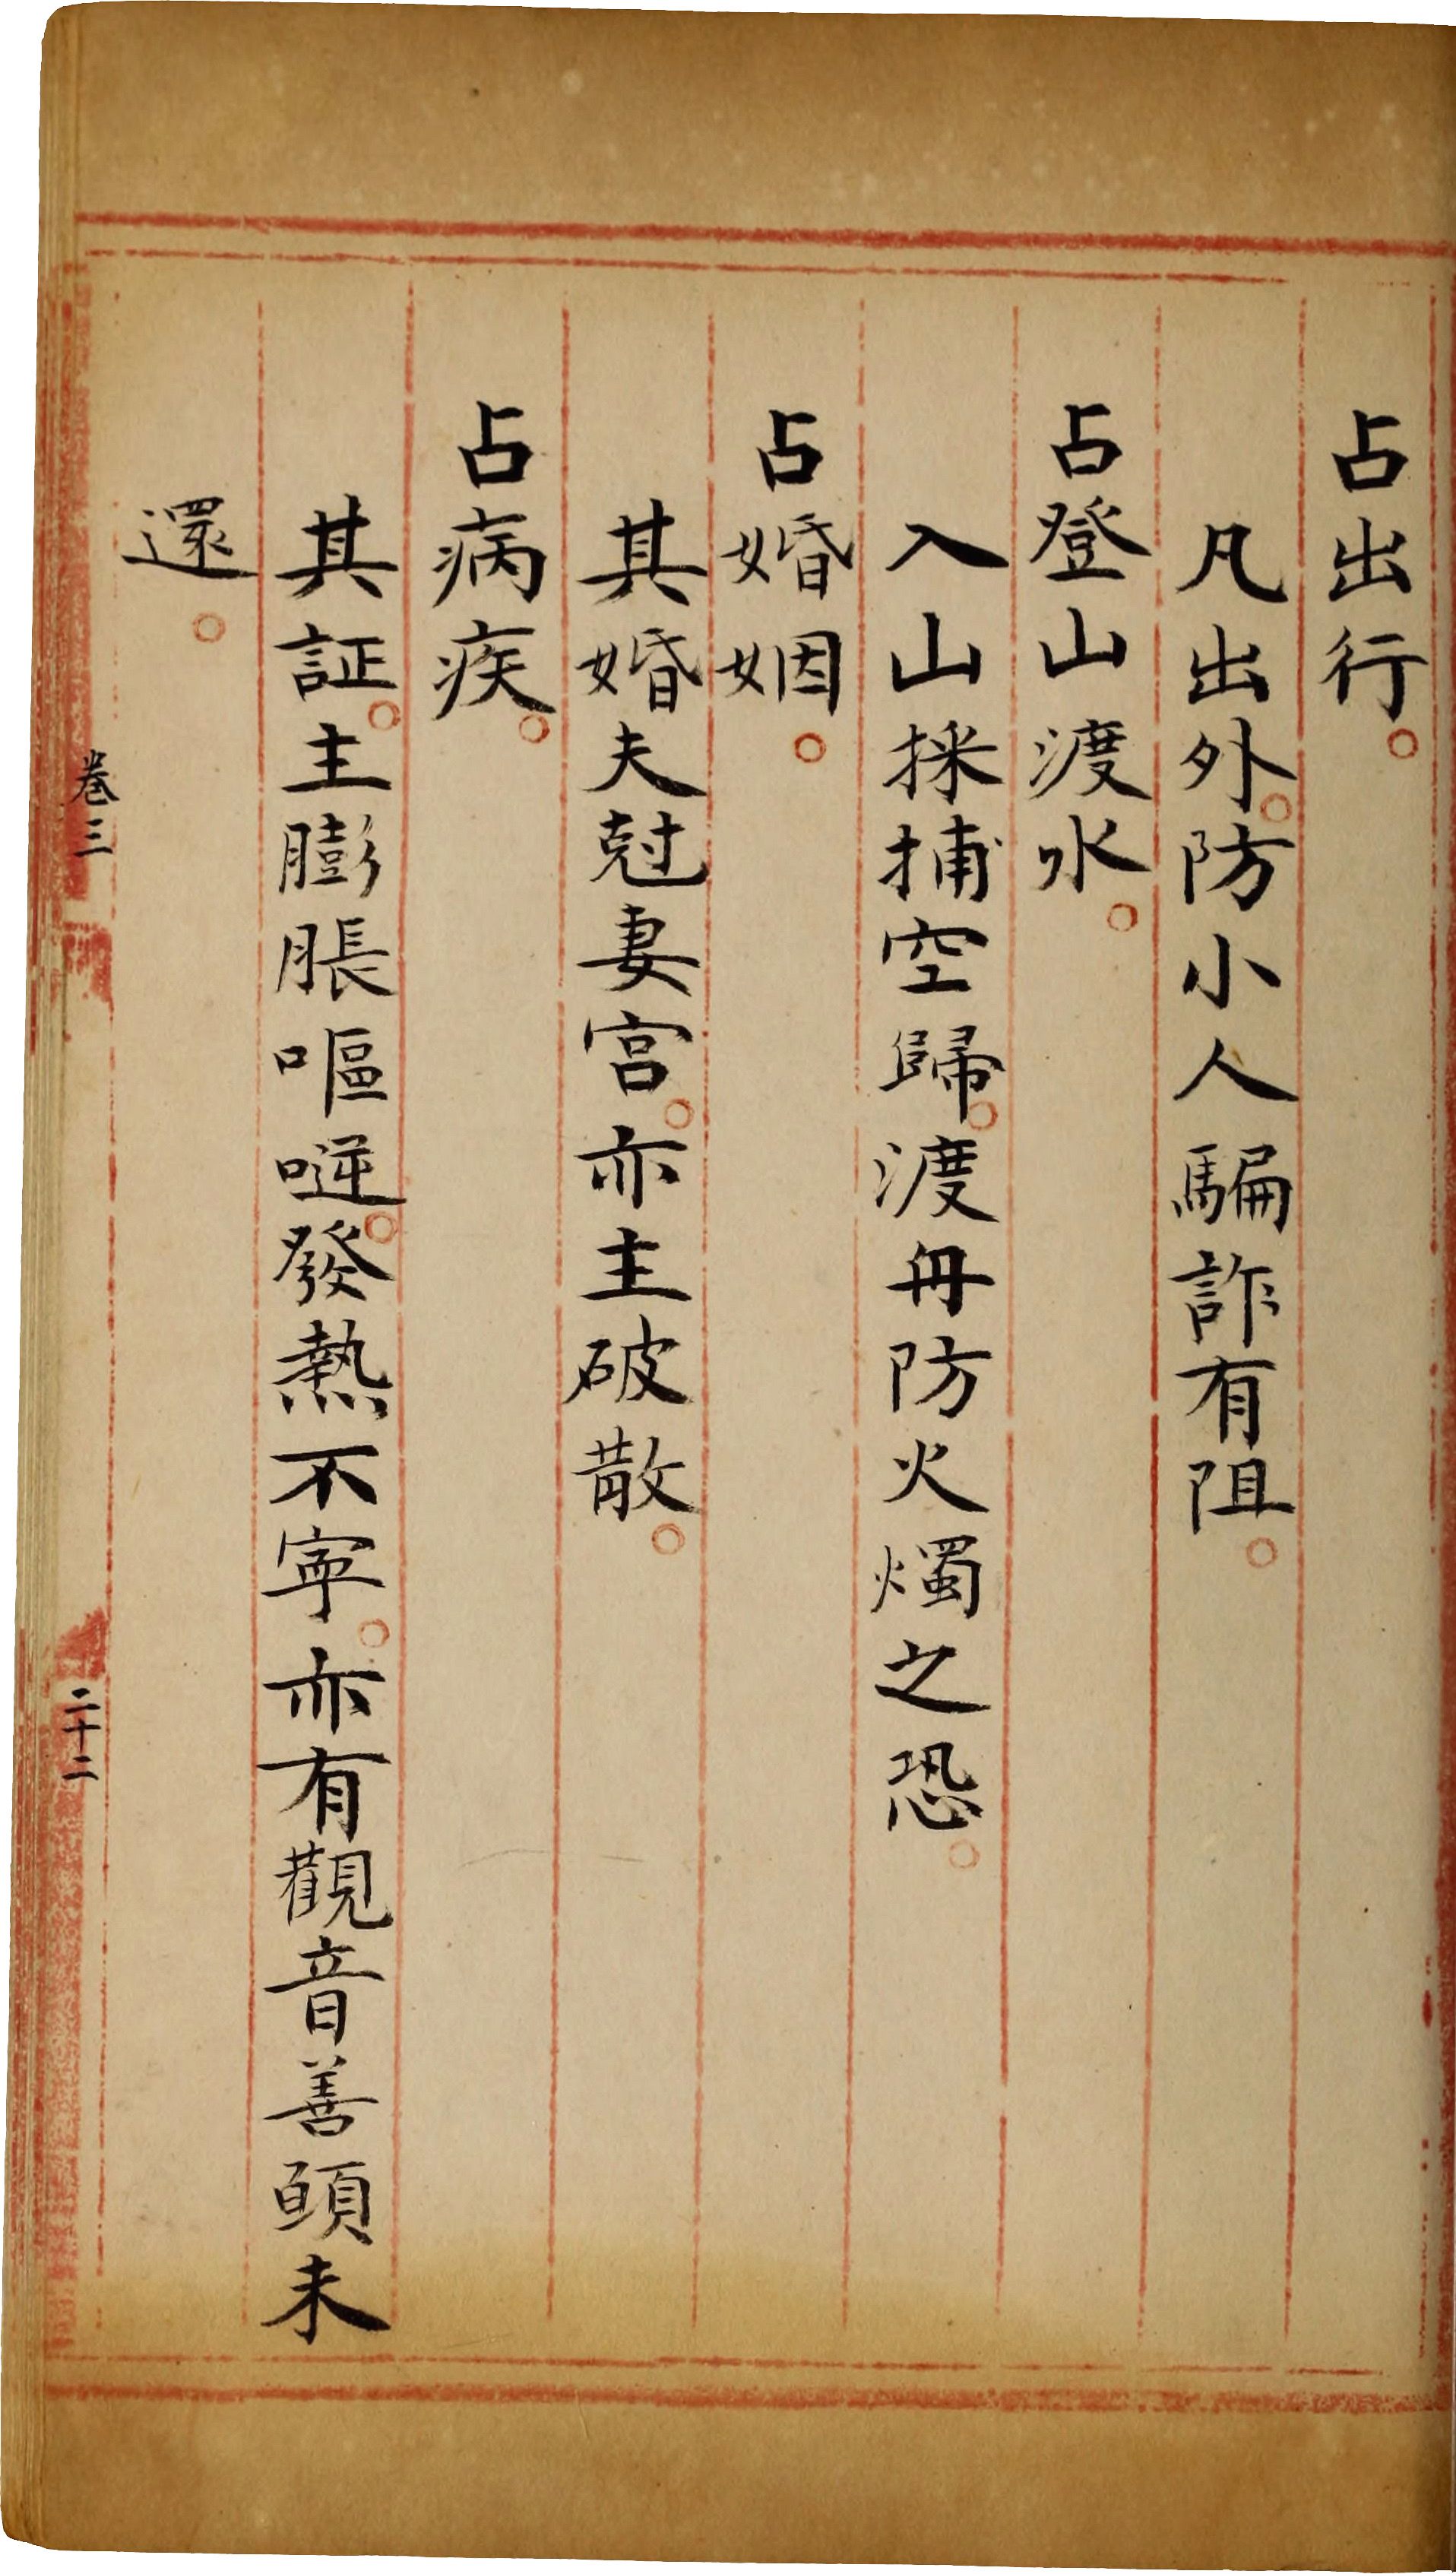 占出行。
凡出外。防小人騙詐有阻。
占登山渡水。
入山採捕空歸。渡舟防火燭之恐。
占婚姻。
其婚夫尅妻宫。亦主破散。
占病疾。
其証。主膨脹嘔噬。發熱不寜。亦有觀音善頭未
還。
卷三
二十二